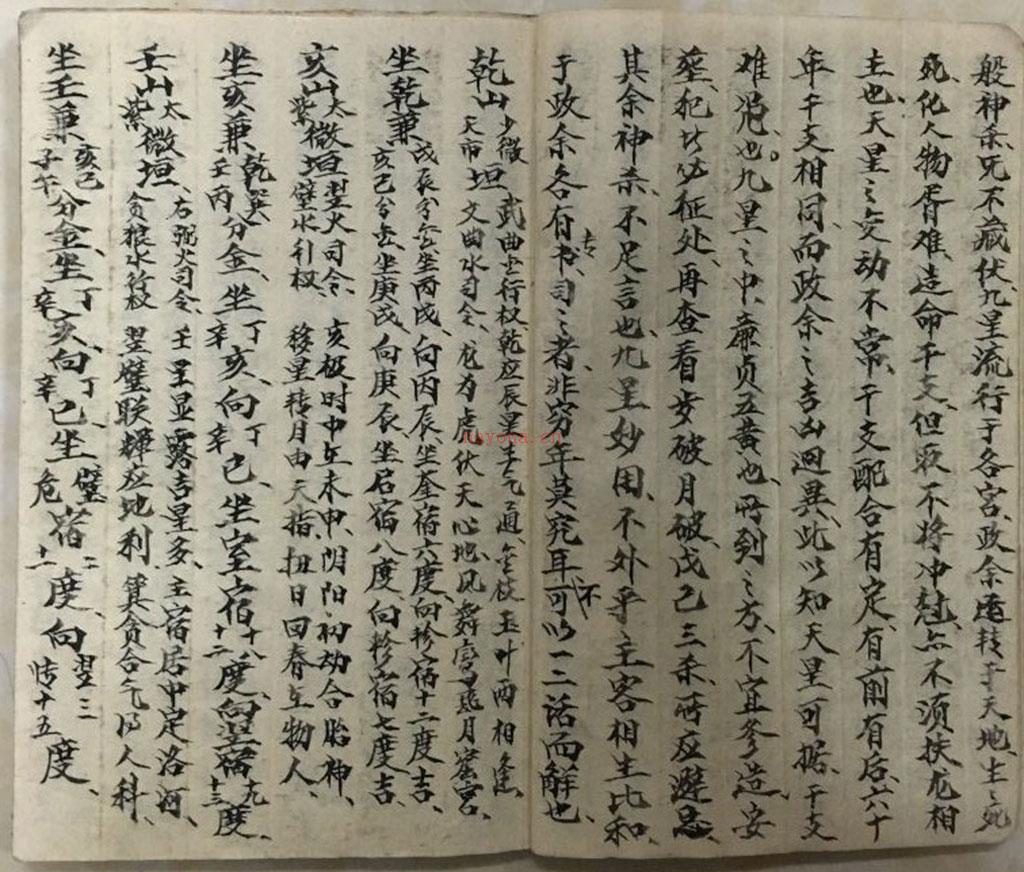 般神杀、咒不藏伏、九星流行于各宫、政余运转乎天地、生之死
死、化人物胥难、造命干支、但取不将冲克、亦不须扶龙相
主也、天星之变动不常、干支配合有定、有前有后、六十
年干支相同、而政余之吉凶迥異、此以知天星可据、干支
难凭也。九星之中、廉贞五黄也、所到之方、不宜参造安
葬、犯此必征处、再查看岁破月破戊己三杀、所应避忌
其余神杀、不足言也、九星妙用、不外乎主客相生比和、
于政余各有专书、司之者、非穷年莫究耳、不可以一二话而解也、
乾山 少微 天市 垣 武曲金行权、乾应辰星、生气通、金枝玉叶两相逢、
文曲水司令、龙为虎伏天心地、风舞鸾 月 宫、
坐乾兼 戌辰分金、坐丙戌、向丙辰、坐奎宿六度、向轸宿十二度吉、
亥巳分金、坐庚戌、向庚辰、坐 宿八度、向轸宿七度吉、
亥山 太紫 微垣 翌火司令、亥极时中在未申、阴阳初动合胎神、
壁水引权、移星转月由天指、扭日回春在物人、
坐亥兼 乾巽 壬丙 分金、坐 丁辛 亥、向 丁辛 巳、坐室宿 十八 十二 度、向翌宿 九 十三 度、
壬山 太紫 微垣、右弼火司令、壬星显露吉星多、主宿居中定洛河、
贪狼水行权 翌璧联辉应地利 箕贪合气得人科、
坐壬兼 亥巳 子午 分金、坐 丁辛 亥、向 丁辛 巳、坐 璧危 宿 二 十一 度、向 翌三 十五 度、
nayona.cn